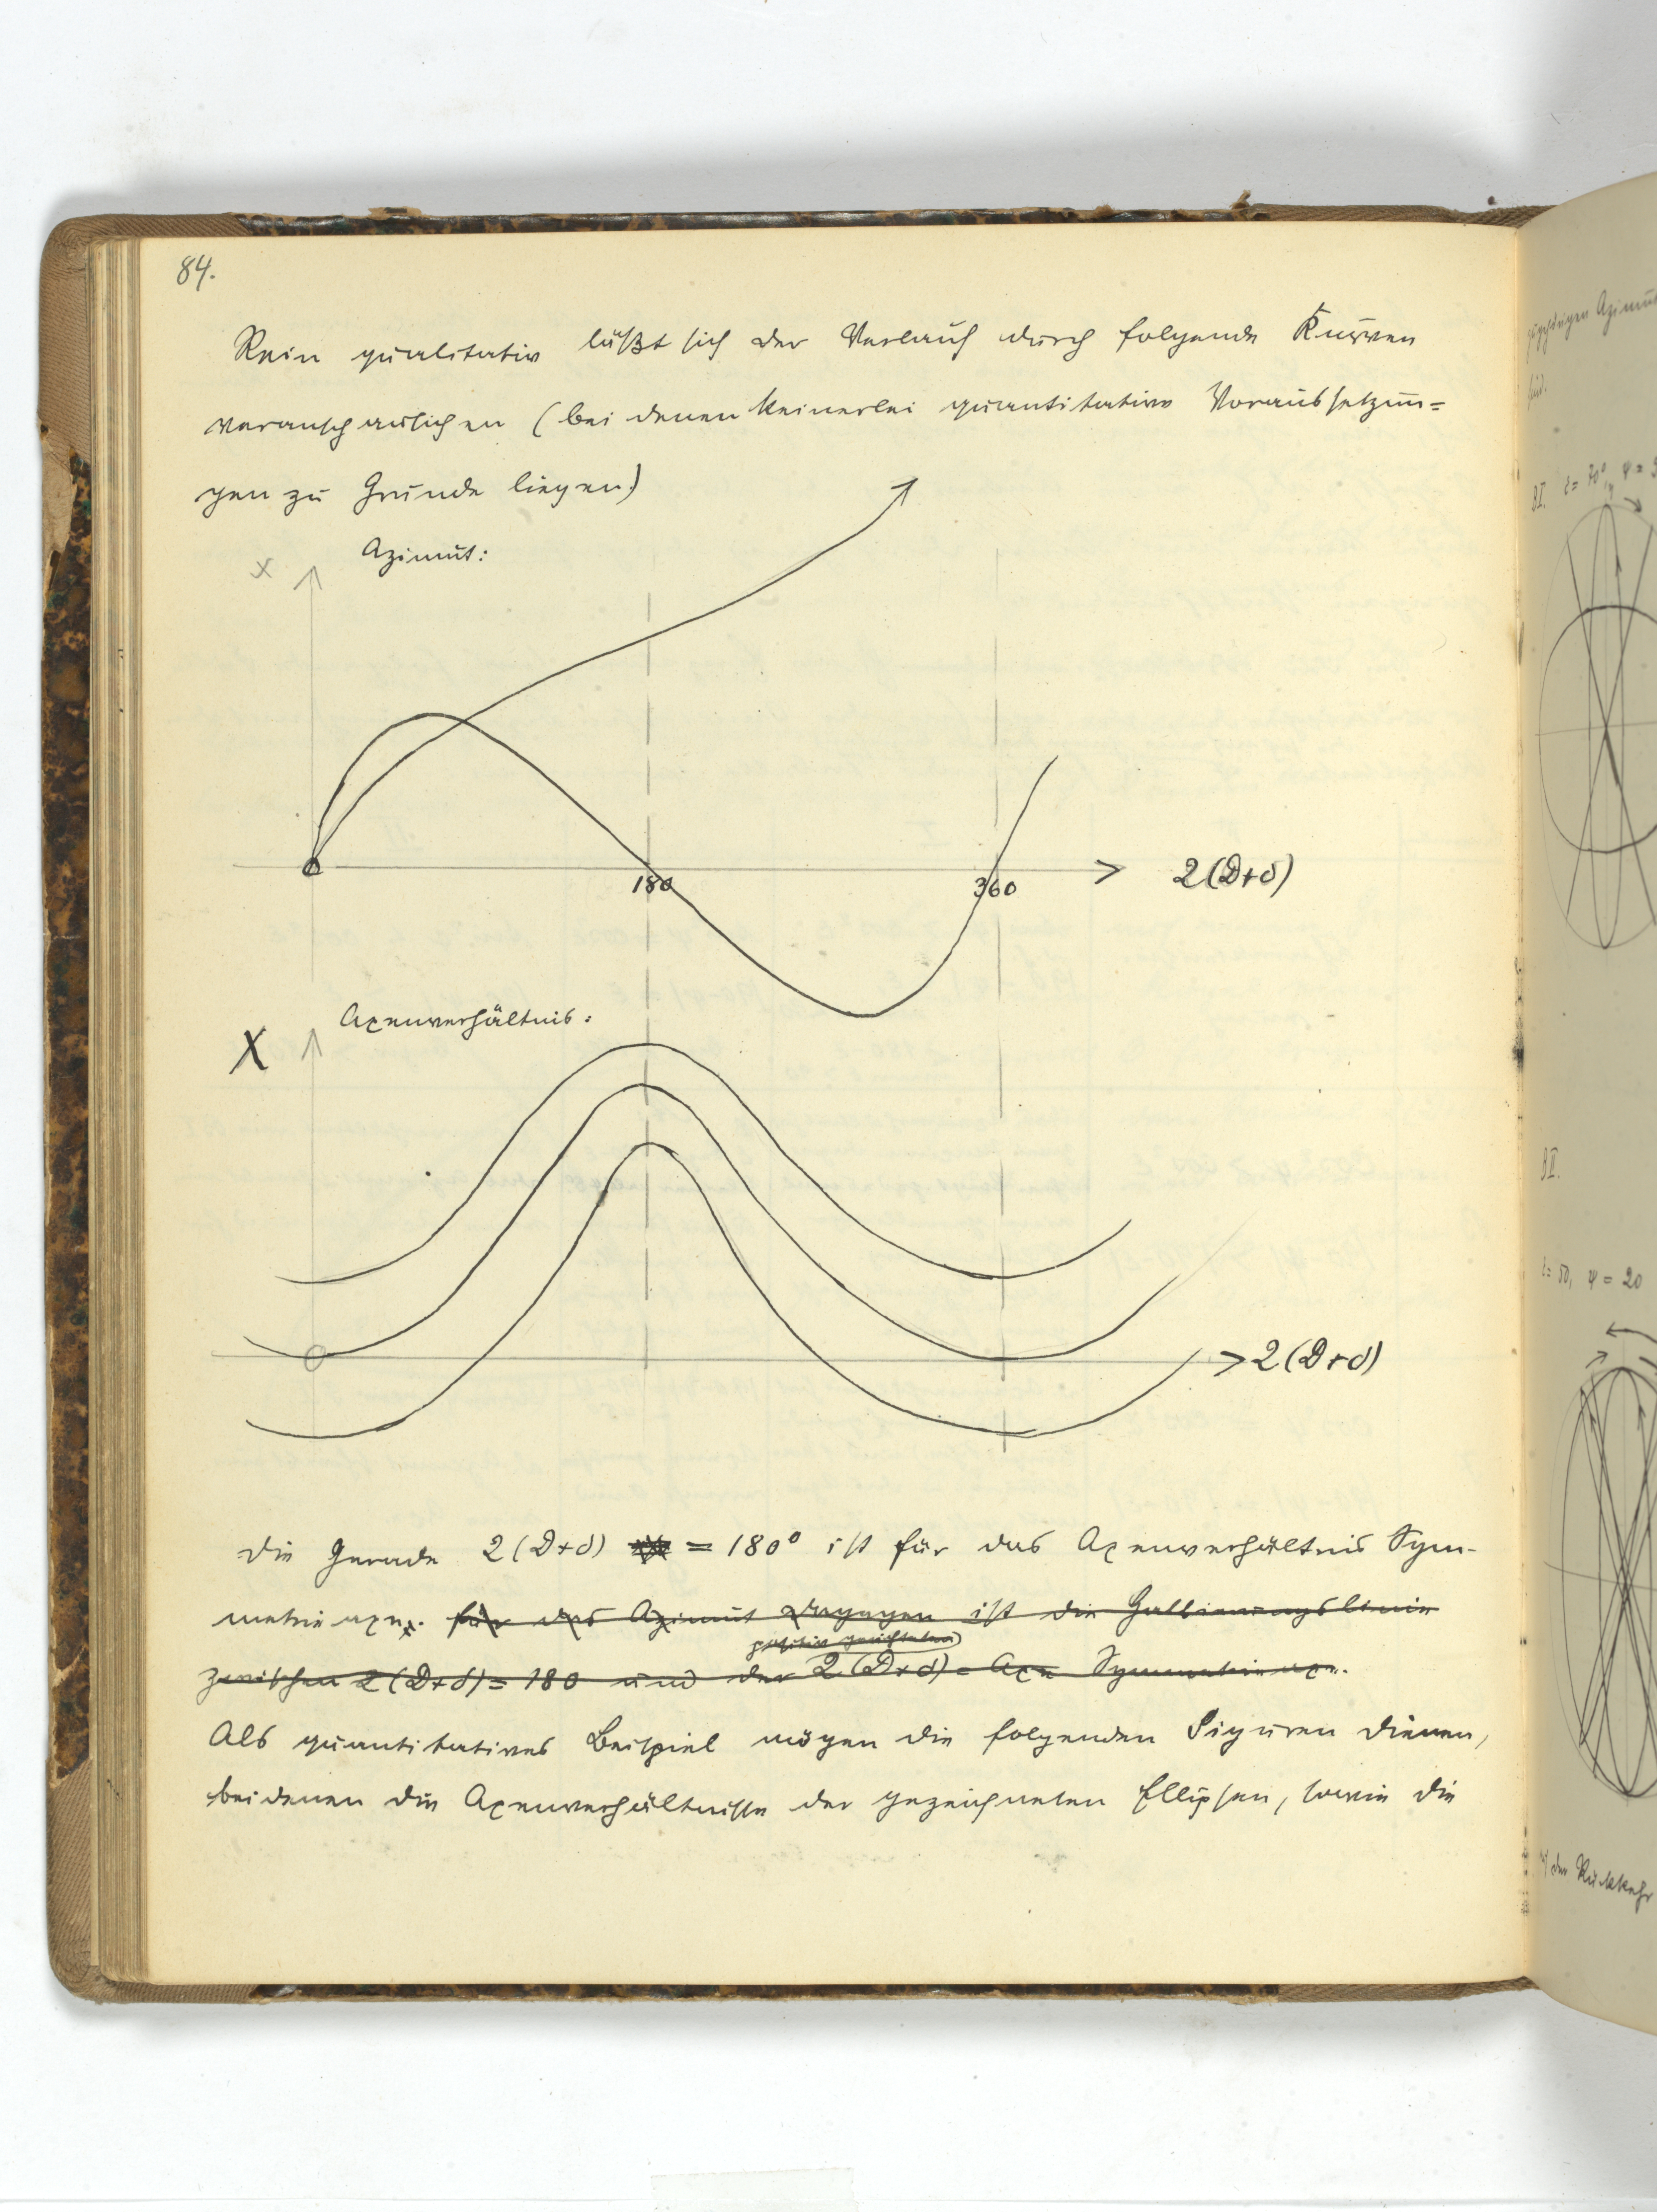 84.
Rein qualitativ läßt sich der Verlauf durch folgende Kurven
veranschaulichen (bei denen keinerlei quantitative Voraussetzun=
gen zu Grunde liegen)
Azimut:
x
180
360
2(D+δ)
Axenverhältnis:
X
2(D+δ)
Die Gerade 2(D+δ) = 180° ist für das Axenverhältnis Sym-
metrieaxe. für das Azimut dagegen ist die Halbierungslinie
positiv gerichteten
zwischen 2(D+δ) = 180 und der 2(D+δ) = Axe Symmetrieaxe.
Als quantitatives Beispiel mögen die folgenden Figuren dienen,
bei denen die Axenverhältnisse der gezeichneten Ellipsen, sowie die
Azimu
sind.
BI. ε = 70°, ψ =
BII.
ε = 50, ψ = 20
der Rückkehr